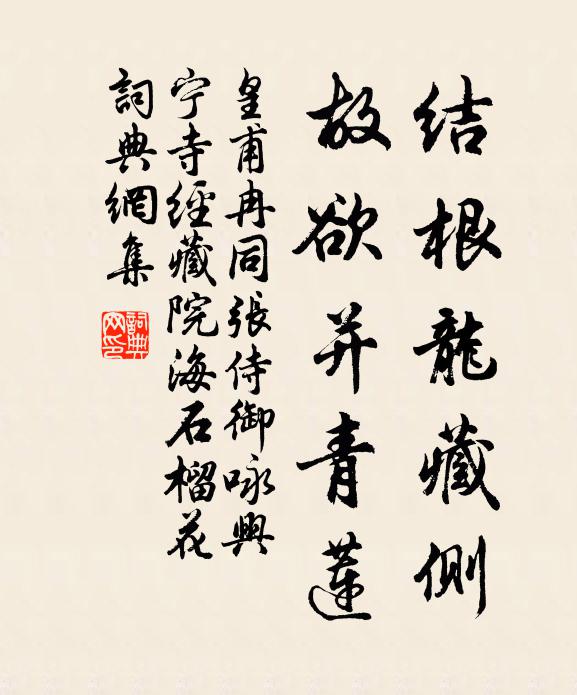 结根龍藏側
故欲并青蓮
皇甫冉同張侍御咏興
宁寺經藏院海石榴花
詞典網集
詞典
网印